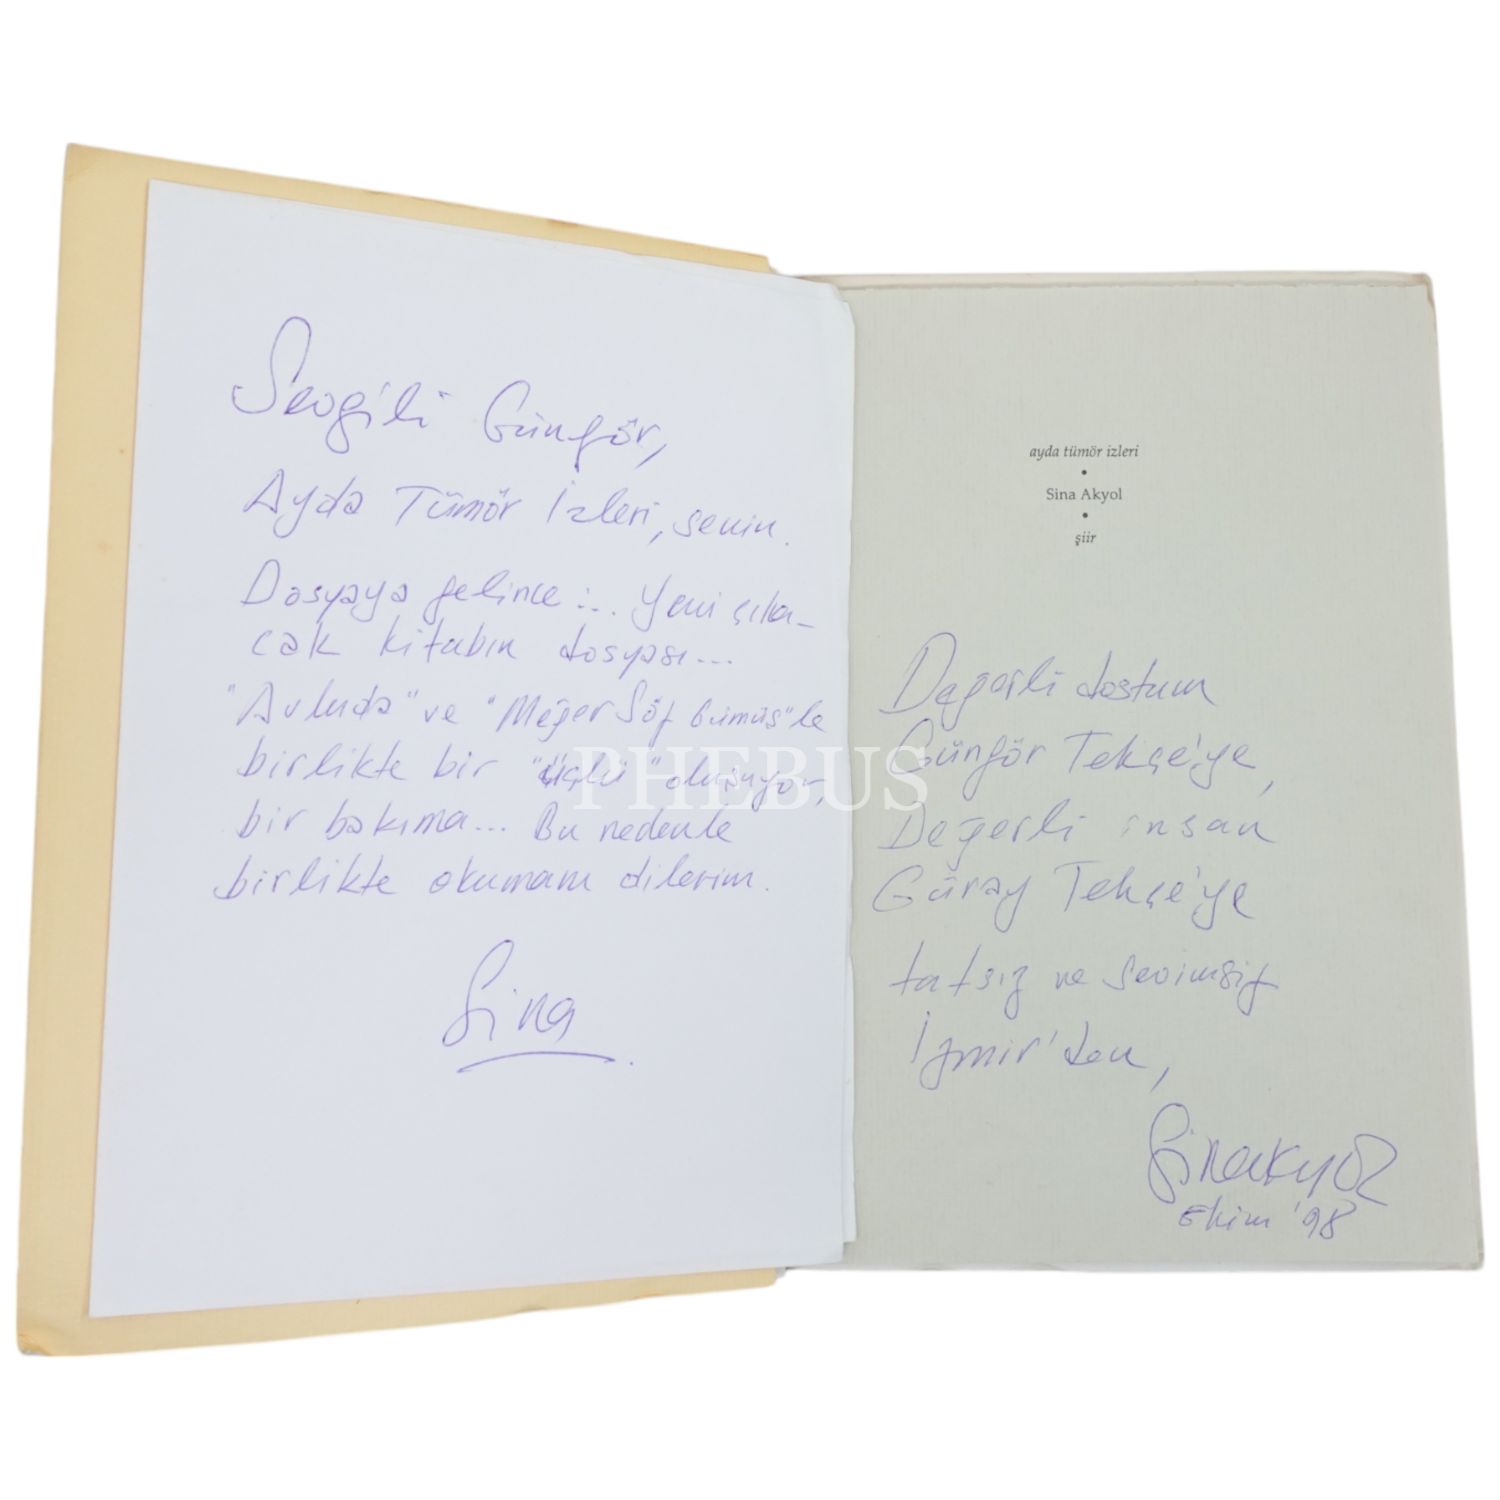 Sevgili Güngör,
Ayda Tümör İzleri, senin.
Dosyaya gelince... Yeni çıka-
cak kitabın dosyası...
"Avluda" ve "Meğer Söz Gümüş"le
birlikte bir "üçlü" oluşuyor,
bir bakıma... Bu nedenle
birlikte okumanı dilerim.
Sina
ayda tümör izleri
•
Sina Akyol
•
şiir
Değerli dostum
Güngör Tekçe'ye,
Değerli insan
Güray Tekçe'ye
tatsız ve sevimsiz
İzmir'den,
Sina Akyol
Ekim '98
PHEBUS